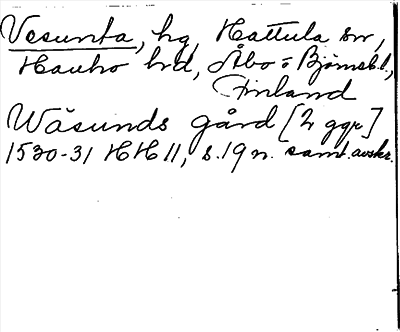 Vesunta, hg, Hattula sn,
Hauho hd, Åbo o Björneb. l.,
Finland
Wäsunds gård [2 ggr]
1530-31 HH II, s. 19 n. samt. avskr.